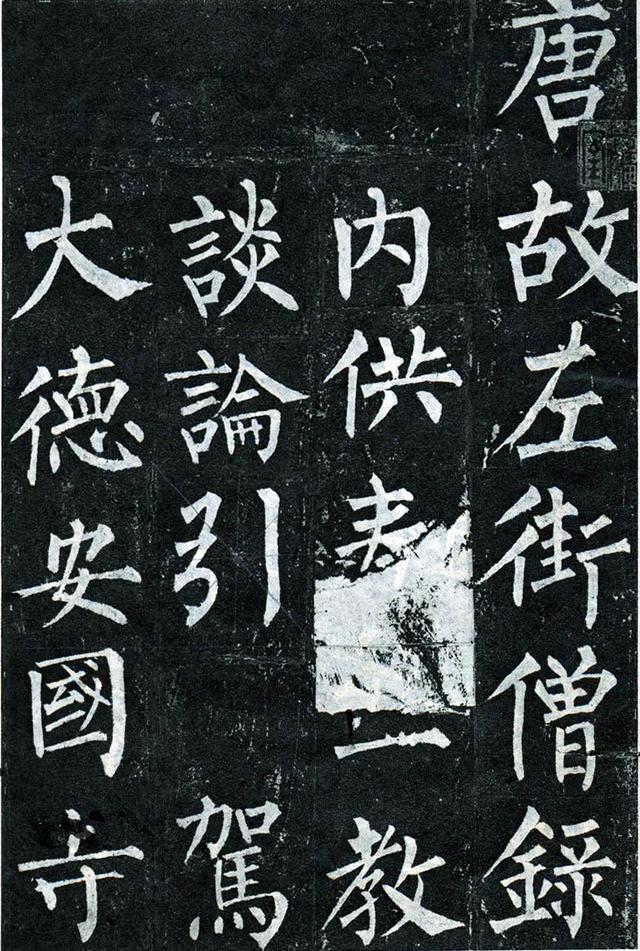 唐故左街僧錄
內供教
談論引駕
大德安國寺